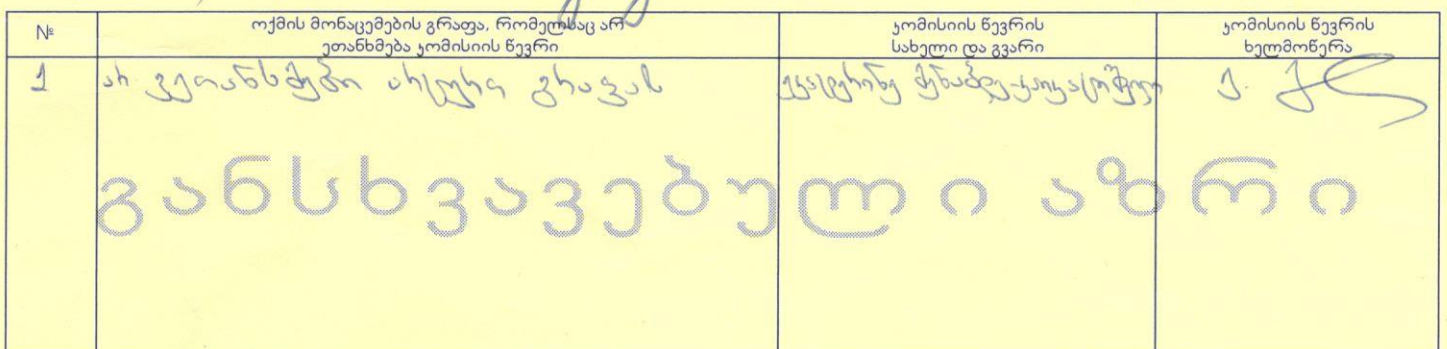 №
ოქმის მონაცემების გრაფა, რომელსაც არ
ეთანხმება კომისიის წევრი
კომისიის წევრის
სახელი და გვარი
კომისიის წევრის
ხელმოწერა
1 არ ვეთანხმები არცერთ გრაფას ეკატერინე
განსხვავებული აზრი